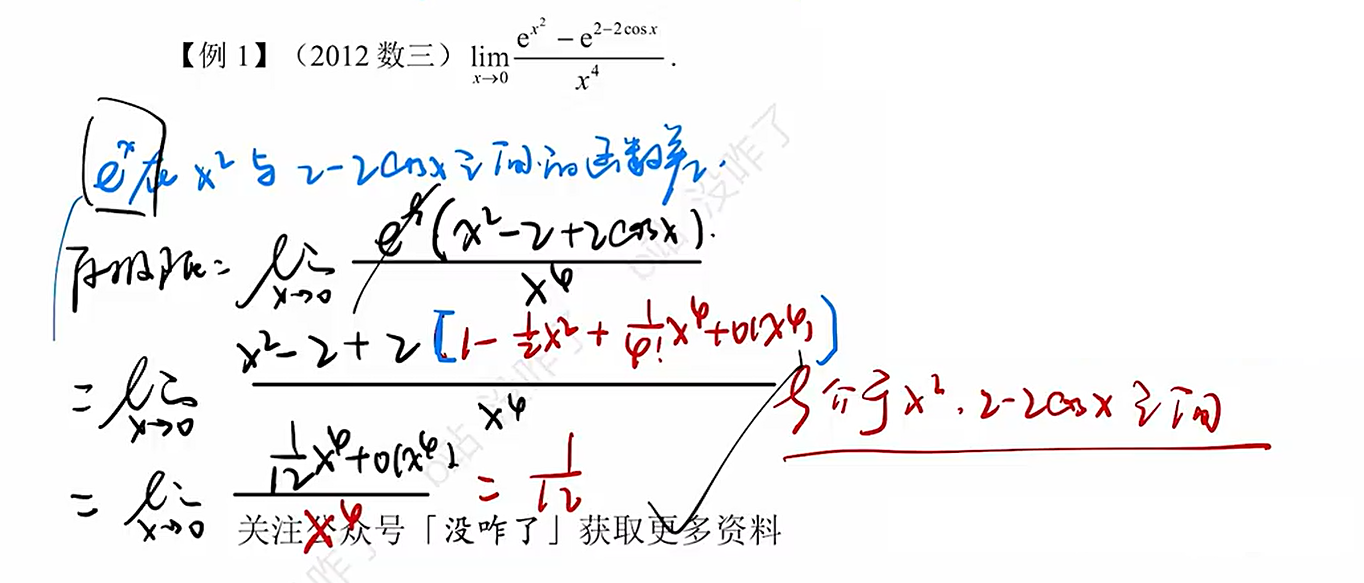 【例 1】（2012 数三）lim_{x→0} (e^{x^2} − e^{2−2cos x}) / x^4 .
e^x在 x^2 与 2-2cosx之间的函数差.
原极限= lim_{x→0} e^ξ(x^2-2+2cosx) / x^4 .
= lim_{x→0} (x^2-2+2[1-\frac{1}{2}x^2+\frac{1}{4!}x^4+o(x^4)]) / x^4
ξ介于x^2, 2-2cosx之间
= lim_{x→0} (\frac{1}{12}x^4+o(x^4)) / x^4 = \frac{1}{12}
关注公众号「没咋了」获取更多资料
b站 没咋了
b站 没咋了
咋了